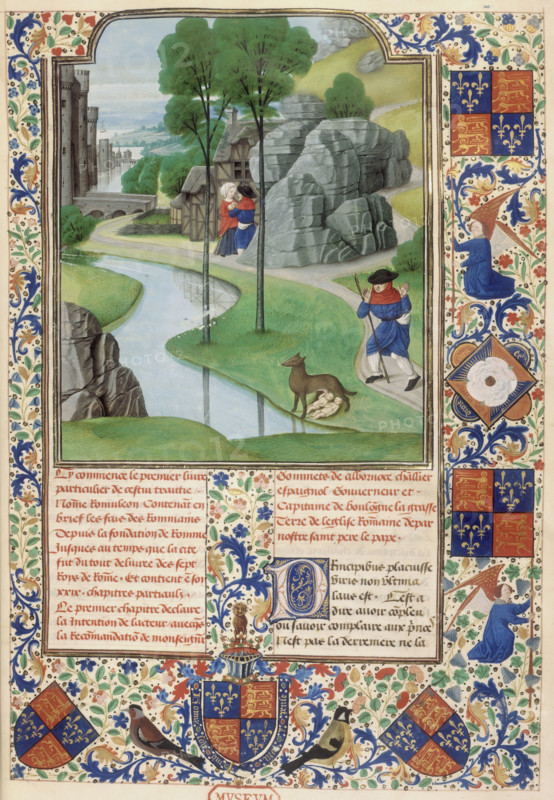 Cy commence le premier livre
particulier de cestui traittie
Nomme Romuleon Contenant en
brief les fais des Rommains
Depuis la fondation de Romme
Jusques au temps que la cite
fut du tout delivree des sept
Roys de Rome. Et contient en soy
xxix. chapitres partiaulx
Le premier chapitre declaire
la Intention de lacteur avecques
la Recomandation de monseigneur
Gommets de albornoce chīllier
espaignol Gouverneur et
Capitaine de boulogne la grasse
Terre de leglise Rommaine de par
nostre saint pere le pape.
Principibus placuisse
viris non ultima
laus est. Cest a
dire avoir compleu
ou savoir complaire aux prīces
Nest pas la derreniere ne la
MVSEVM
PHOTO12